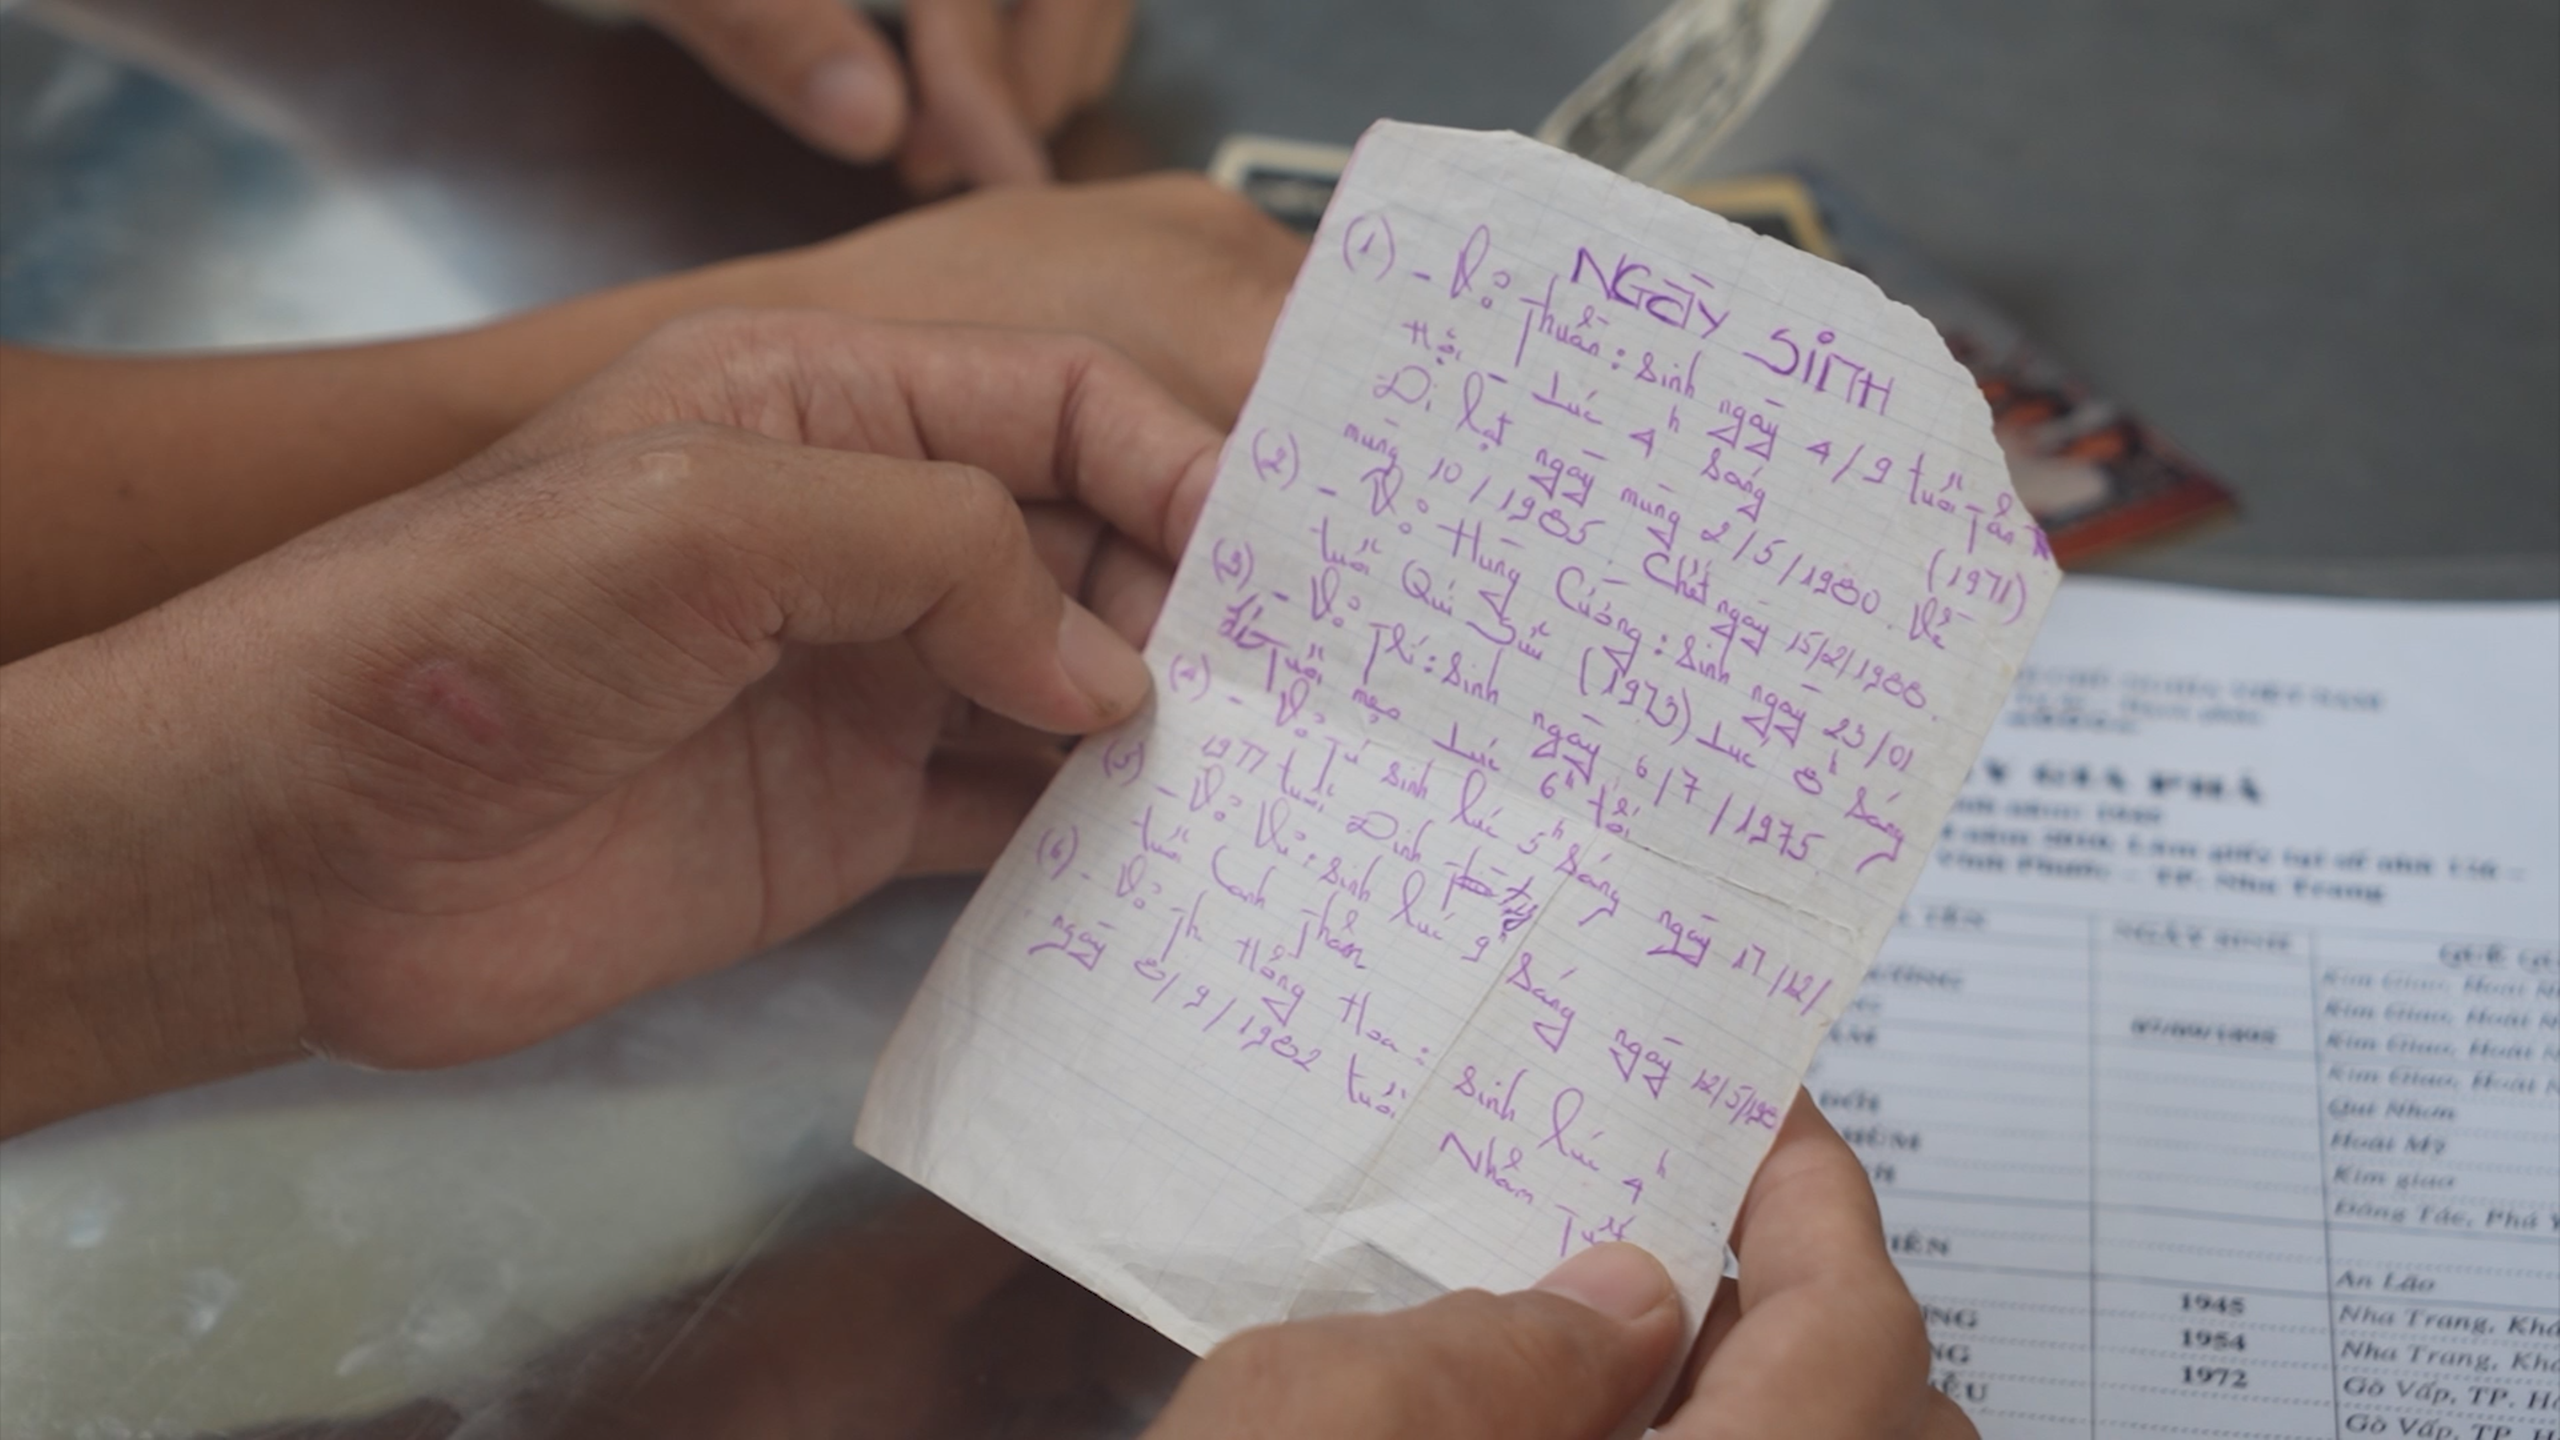 NGÀY SINH
(1) - Võ Thuẫn: Sinh ngày 4/9 tuổi Tân
Hợi - Lúc 4h Sáng (1971)
Đi lạt ngày mùng 2/5/1980. Về
mùng 10/1985. Chết ngày 15/2/1988.
(2) - Võ Hùng Cường: Sinh ngày 23/01
tuổi Quí Sửu (1973) Lúc 8h Sáng
(3) - Võ Trí: Sinh ngày 6/7/1975
Tuổi mẹo Lúc 6h tối
(4) - Võ Tú Sinh lúc 5h Sáng ngày 17/12/
1977 tuổi Đinh tỵ
(5) - Võ Vi: Sinh lúc 9h Sáng ngày 12/5/198
tuổi Canh Thân
(6) - Võ Thị Hồng Hoa: Sinh lúc 4h
ngày 8/9/1982 tuổi Nhâm Tuất
GIA PHẢ
TP. Nha Trang
NGÀY SINH
07/09/1895
Kim Giao, Hoài
Kim Giao, Hoài
Kim Giao, Hoài
Kim Giao, Hoài
Qui Nhơn
Hoài Mỹ
Kim giao
Đông Tác, Phú
An Lão
1945 Nha Trang, Khá
1954 Nha Trang, Khá
1972 Gò Vấp, TP. H
Gò Vấp, TP. H